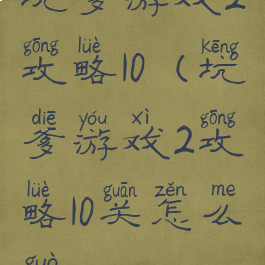 坑爹游戏2
gōng lüè kēng
攻略10（坑
diē yóu xì gōng
爹游戏2攻
lüè guān zěn me
略10关怎么
guò